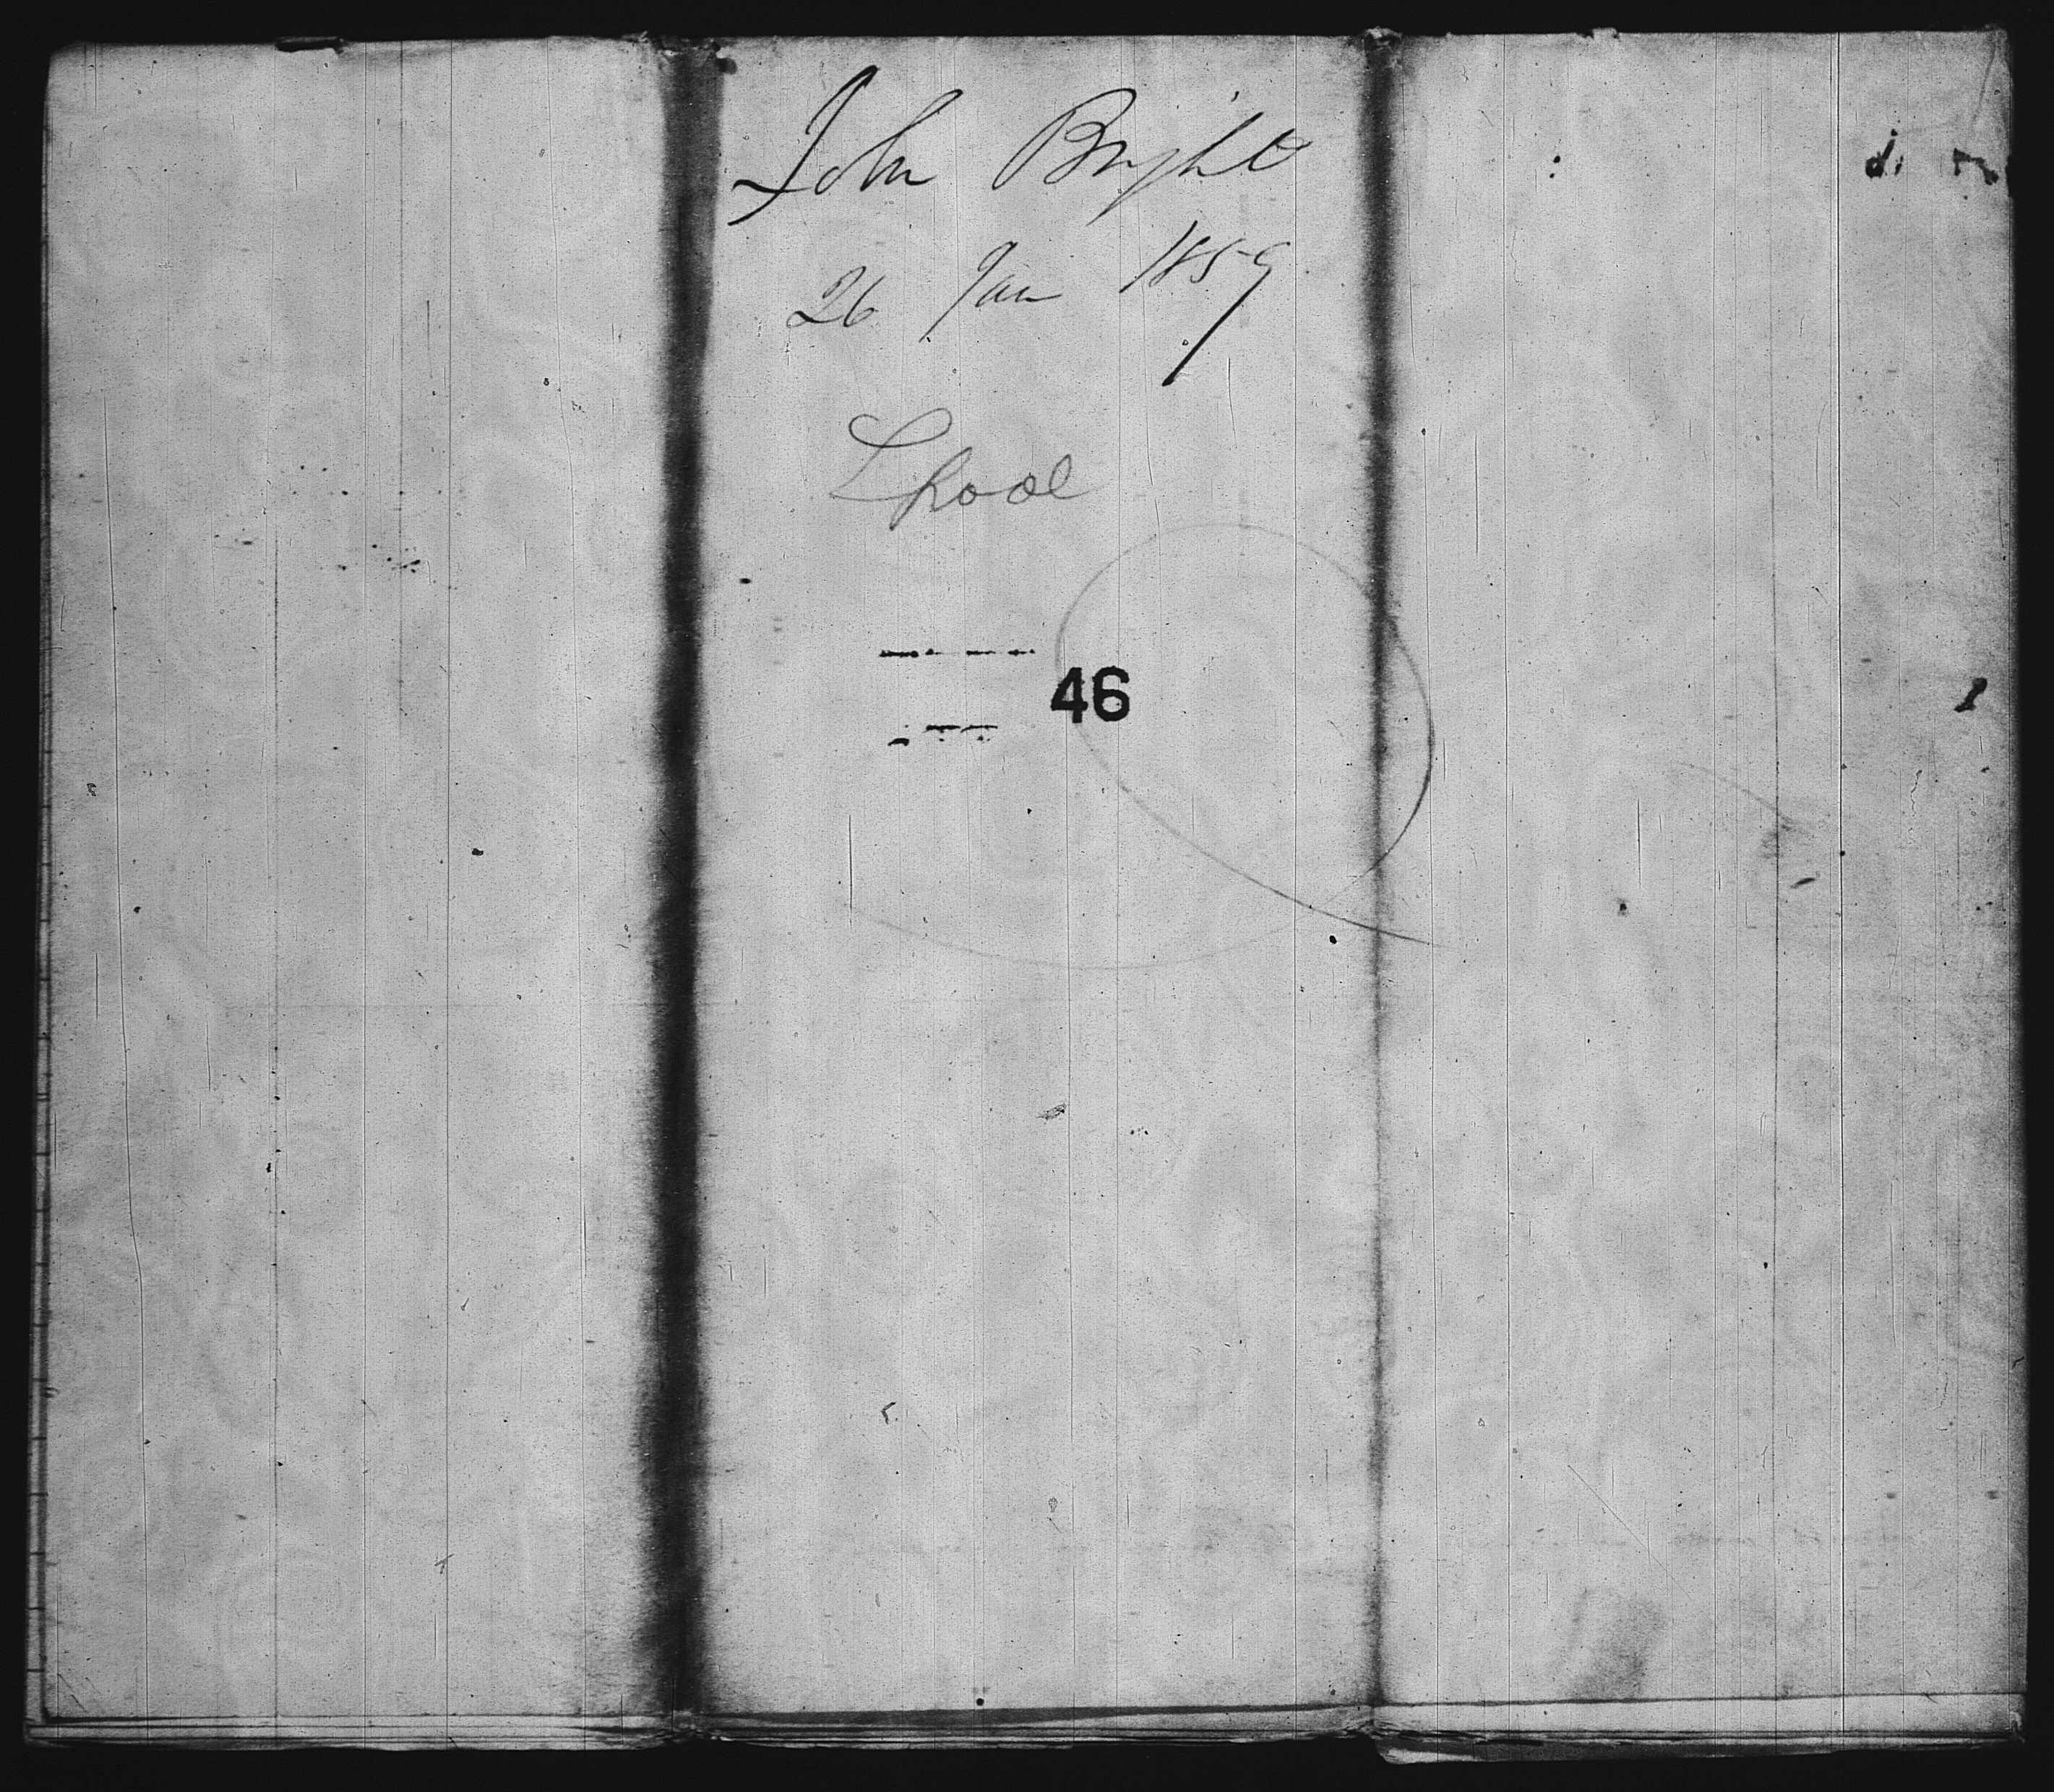 John Bright
26 Jan 1859
Lpool
46